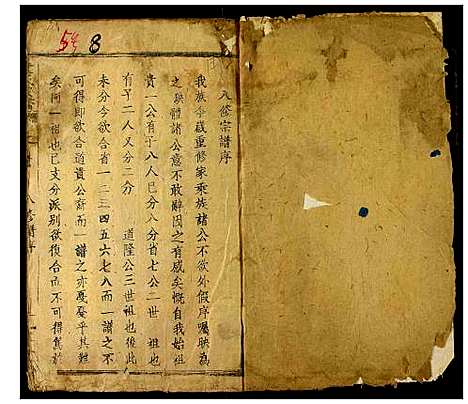 八修宗譜序
我族今歲重修家乘族諸公不欲外假序囑映為
之映體諸公意不敢辭因之有感矣慨自我始祖
貴一公有子八人已分八分省七公二世 祖也
有子二人又分二分 道隆公三世祖也後此
未分今欲合省一二三四五六七八而一譜之不
可得即欲合道貴公裔而一譜之亦戞戞乎其難
矣同一祖也已支分派別欲復合而不可得焉於
八修譜序
54 8